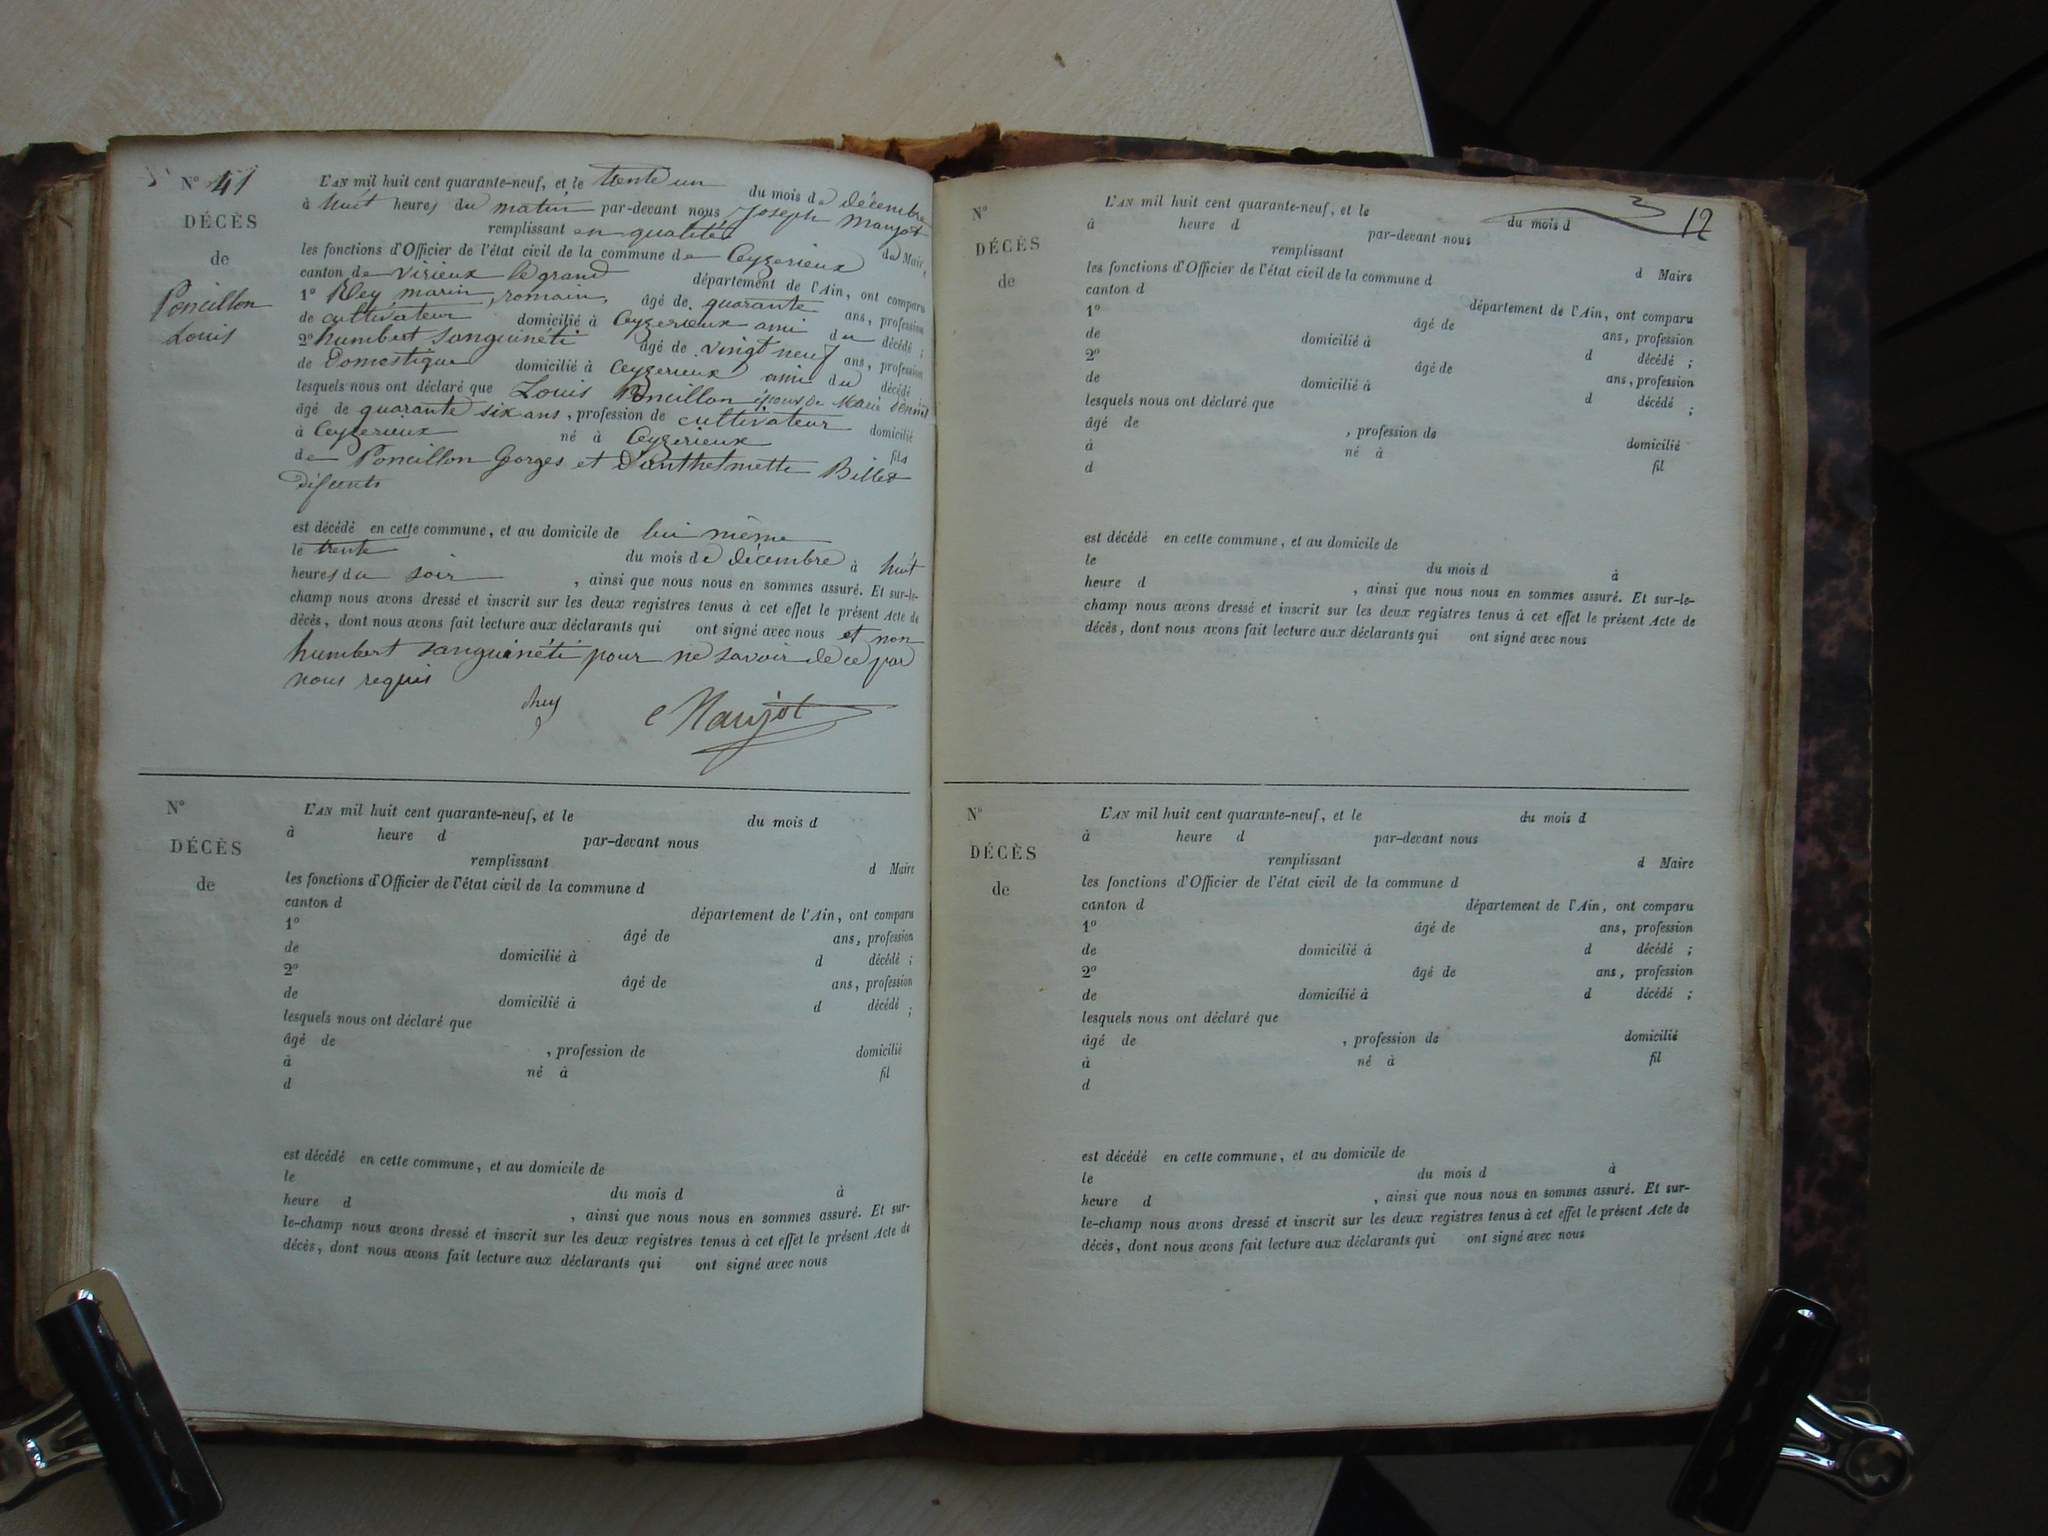 N° 41
DÉCÈS
de
Poncillon
Louis
L'AN mil huit cent quarante-neuf, et le trente un du mois de décembre
à huit heures du matin par-devant nous Joseph Maujot
remplissant en qualité du Maire,
les fonctions d'Officier de l'état civil de la commune de Ceyzerieux
canton de virieux le grand département de l'Ain, ont comparu
1° Rey marin, romain, âgé de quarante ans, profession
de cultivateur domicilié à Ceyzerieux ami du décédé ;
2° humbert Sanguinéti âgé de vingt neuf ans, profession
de Domestique domicilié à Ceyzerieux ami du décédé ;
lesquels nous ont déclaré que Louis Poncillon époux de Marie
âgé de quarante six ans, profession de cultivateur domicilié
à Ceyzerieux né à Ceyzerieux fils
de Poncillon Gorges et D'anthelmette Billet
défunts
est décédé en cette commune, et au domicile de lui même
le trente du mois de décembre à huit
heures du soir , ainsi que nous nous en sommes assuré. Et sur-le-
champ nous avons dressé et inscrit sur les deux registres tenus à cet effet le présent Acte de
décès, dont nous avons fait lecture aux déclarants qui ont signé avec nous et non
humbert sanguinéti pour ne savoir de ce par
nous requis
Rey Maujot
N°
DÉCÈS
de
L'AN mil huit cent quarante-neuf, et le du mois d
à heure d par-devant nous
remplissant d Maire
les fonctions d'Officier de l'état civil de la commune d
canton d département de l'Ain, ont comparu
1° âgé de ans, profession
de domicilié à d décédé ;
2° âgé de ans, profession
de domicilié à d décédé ;
lesquels nous ont déclaré que
âgé de , profession de domicilié
à né à fil
d
est décédé en cette commune, et au domicile de
le du mois d à
heure d , ainsi que nous nous en sommes assuré. Et sur-
le-champ nous avons dressé et inscrit sur les deux registres tenus à cet effet le présent Acte de
décès, dont nous avons fait lecture aux déclarants qui ont signé avec nous
12
N°
DÉCÈS
de
L'AN mil huit cent quarante-neuf, et le du mois d
à heure d par-devant nous
remplissant d Maire
les fonctions d'Officier de l'état civil de la commune d
canton d département de l'Ain, ont comparu
1° âgé de ans, profession
de domicilié à d décédé ;
2° âgé de ans, profession
de domicilié à d décédé ;
lesquels nous ont déclaré que
âgé de , profession de domicilié
à né à fil
d
est décédé en cette commune, et au domicile de
le du mois d à
heure d , ainsi que nous nous en sommes assuré. Et sur-le-
champ nous avons dressé et inscrit sur les deux registres tenus à cet effet le présent Acte de
décès, dont nous avons fait lecture aux déclarants qui ont signé avec nous
N°
DÉCÈS
de
L'AN mil huit cent quarante-neuf, et le du mois d
à heure d par-devant nous
remplissant d Maire
les fonctions d'Officier de l'état civil de la commune d
canton d département de l'Ain, ont comparu
1° âgé de ans, profession
de domicilié à d décédé ;
2° âgé de ans, profession
de domicilié à d décédé ;
lesquels nous ont déclaré que
âgé de , profession de domicilié
à né à fil
d
est décédé en cette commune, et au domicile de
le du mois d à
heure d , ainsi que nous nous en sommes assuré. Et sur-
le-champ nous avons dressé et inscrit sur les deux registres tenus à cet effet le présent Acte de
décès, dont nous avons fait lecture aux déclarants qui ont signé avec nous